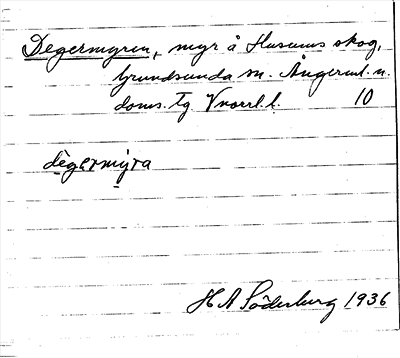 Degermyren, myr å Husums skog,
Grundsunda sn. Ångerml. n.
doms. tg. Vnorrl. l. 10
degermyra
H A Söderburg 1936